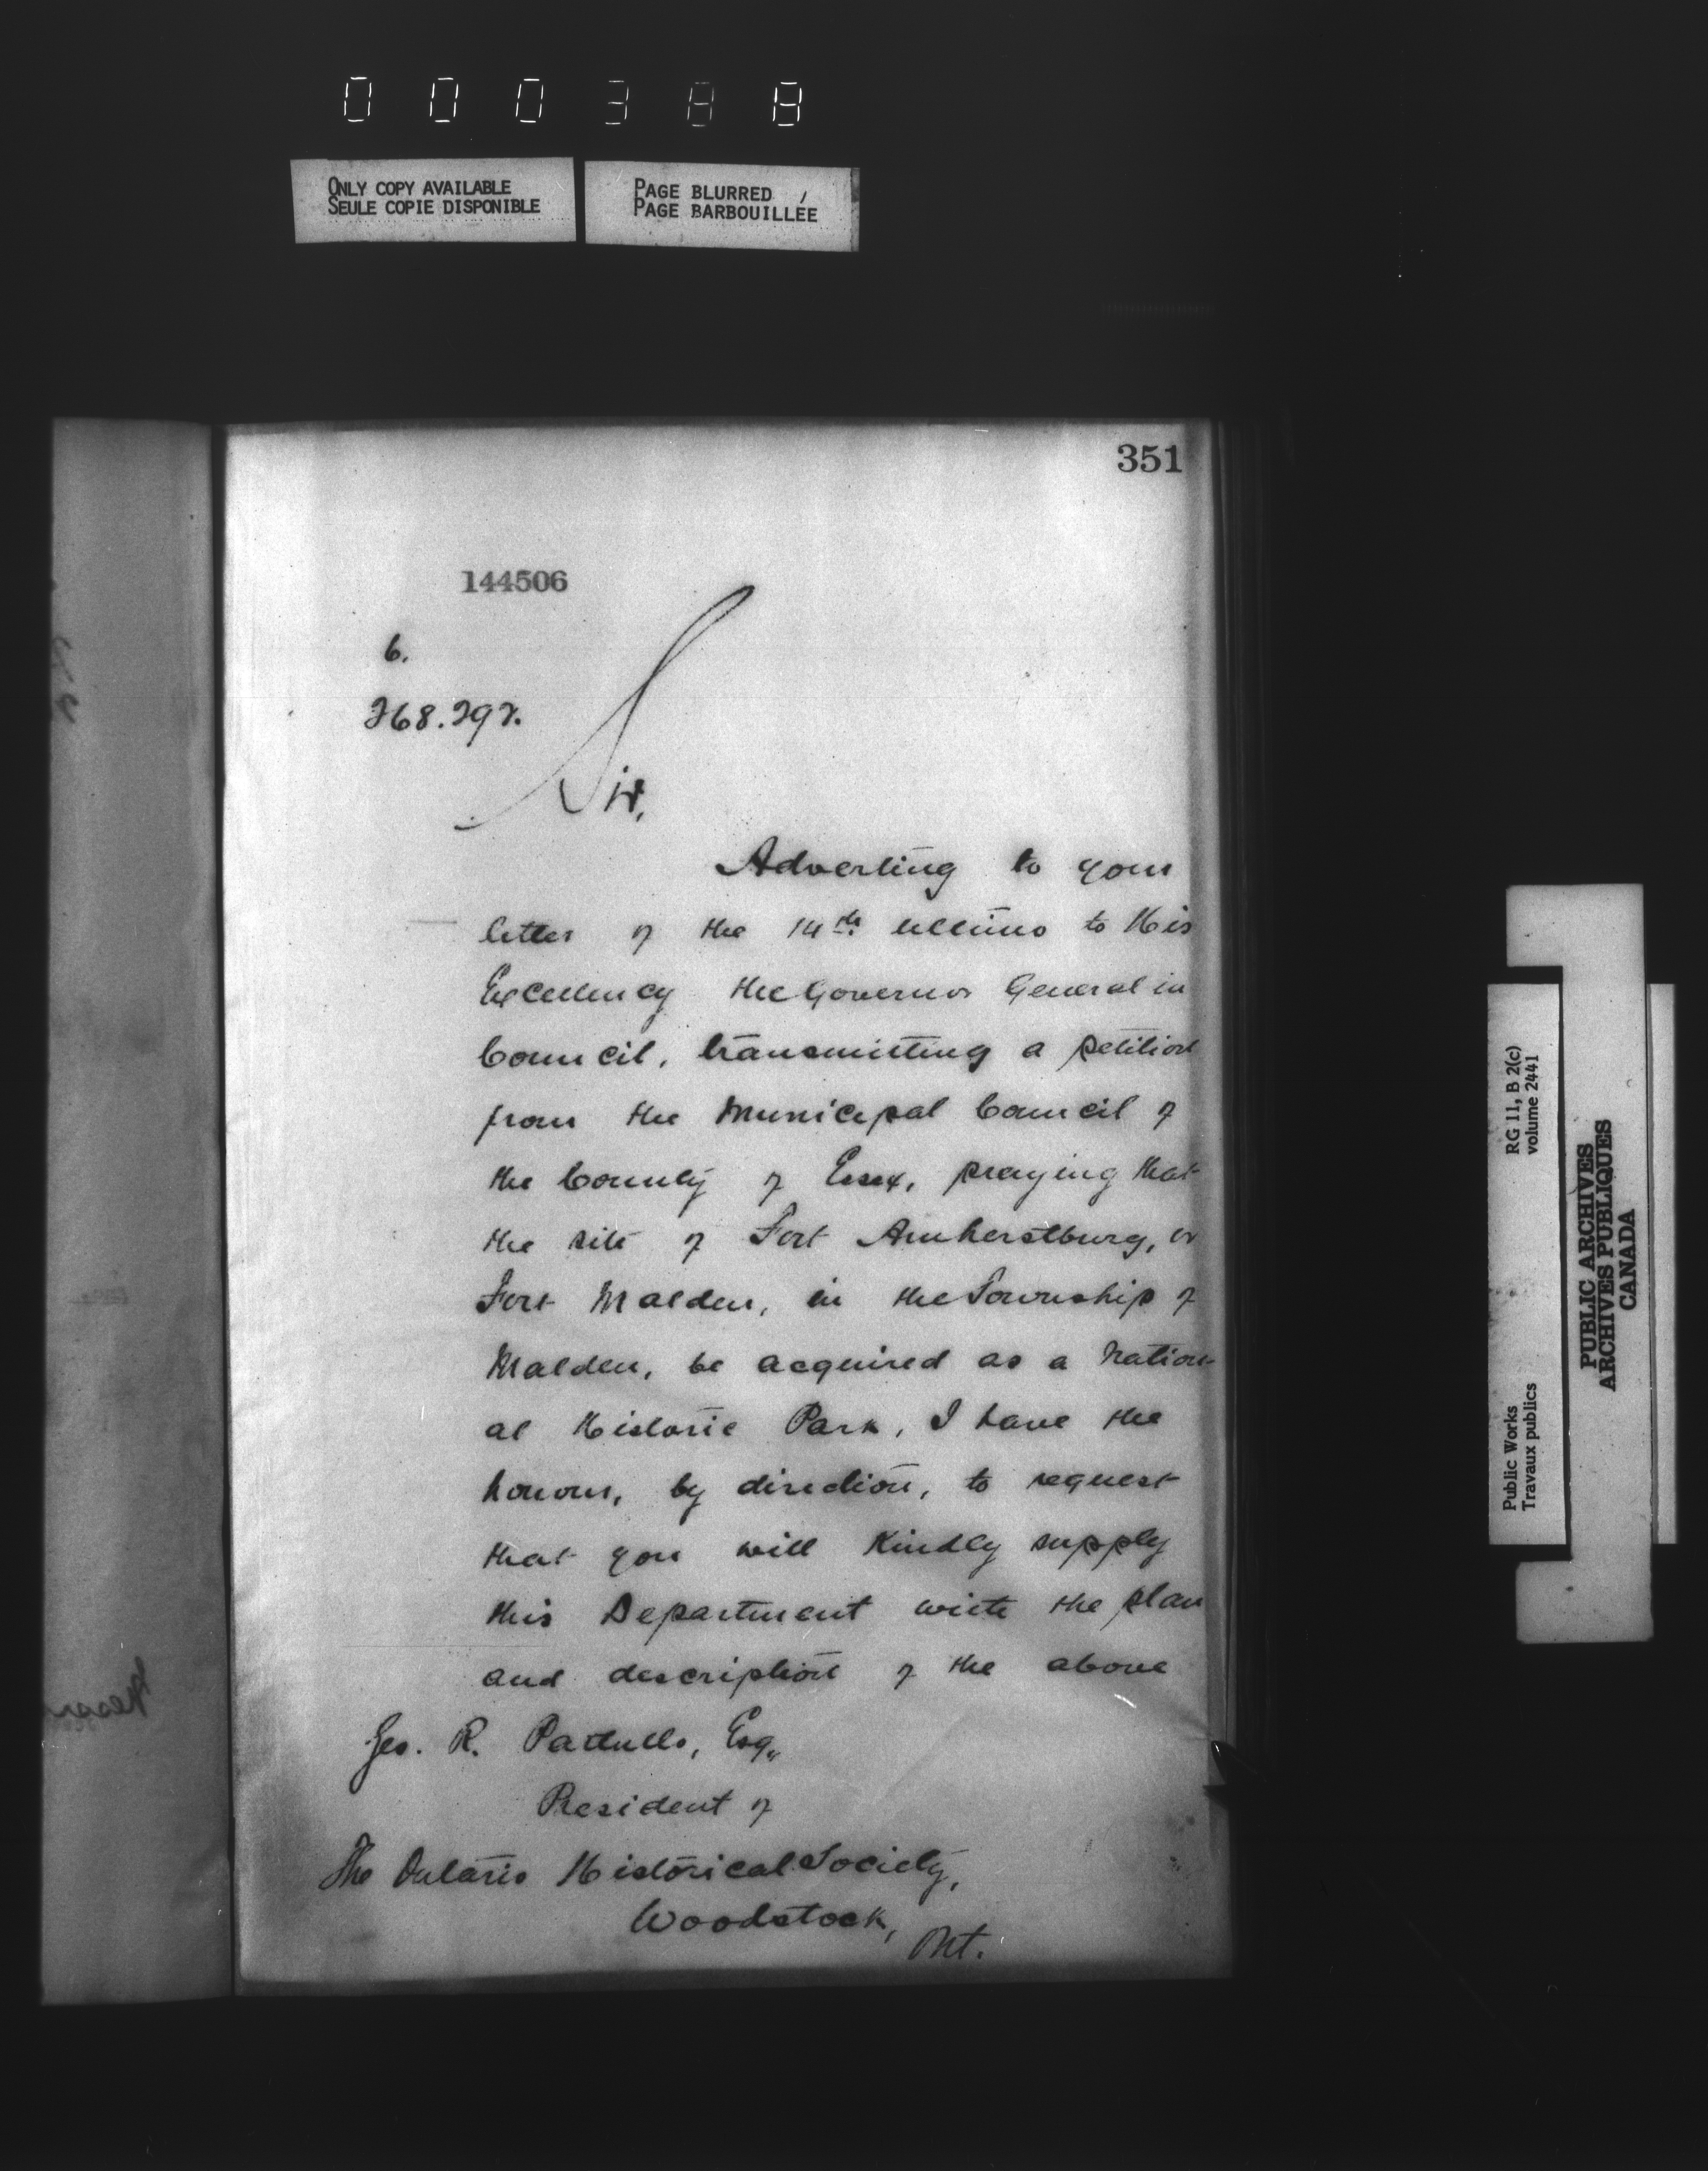 000388
ONLY COPY AVAILABLE
SEULE COPIE DISPONIBLE
PAGE BLURRED
PAGE BARBOUILLÉE
351
144506
6.
268.292.
Sir,
Adverting to your
letter of the 14th. ultimo to His
Excellency the Governor General in
Council, transmitting a petition
from the Municipal Council of
the County of Essex, praying that
the site of Fort Amherstburg, or
Fort Malden, in the Township of
Malden, be acquired as a Nation-
al Historic Park, I have the
honour, by direction, to request
that you will kindly supply
this Department with the plan
and description of the above
Geo. R. Pattullo, Esq.,
President of
The Ontario Historical Society,
Woodstock,
Ont.
Public Works
Travaux publics
RG 11, B 2(c)
volume 2441
PUBLIC ARCHIVES
ARCHIVES PUBLIQUES
CANADA